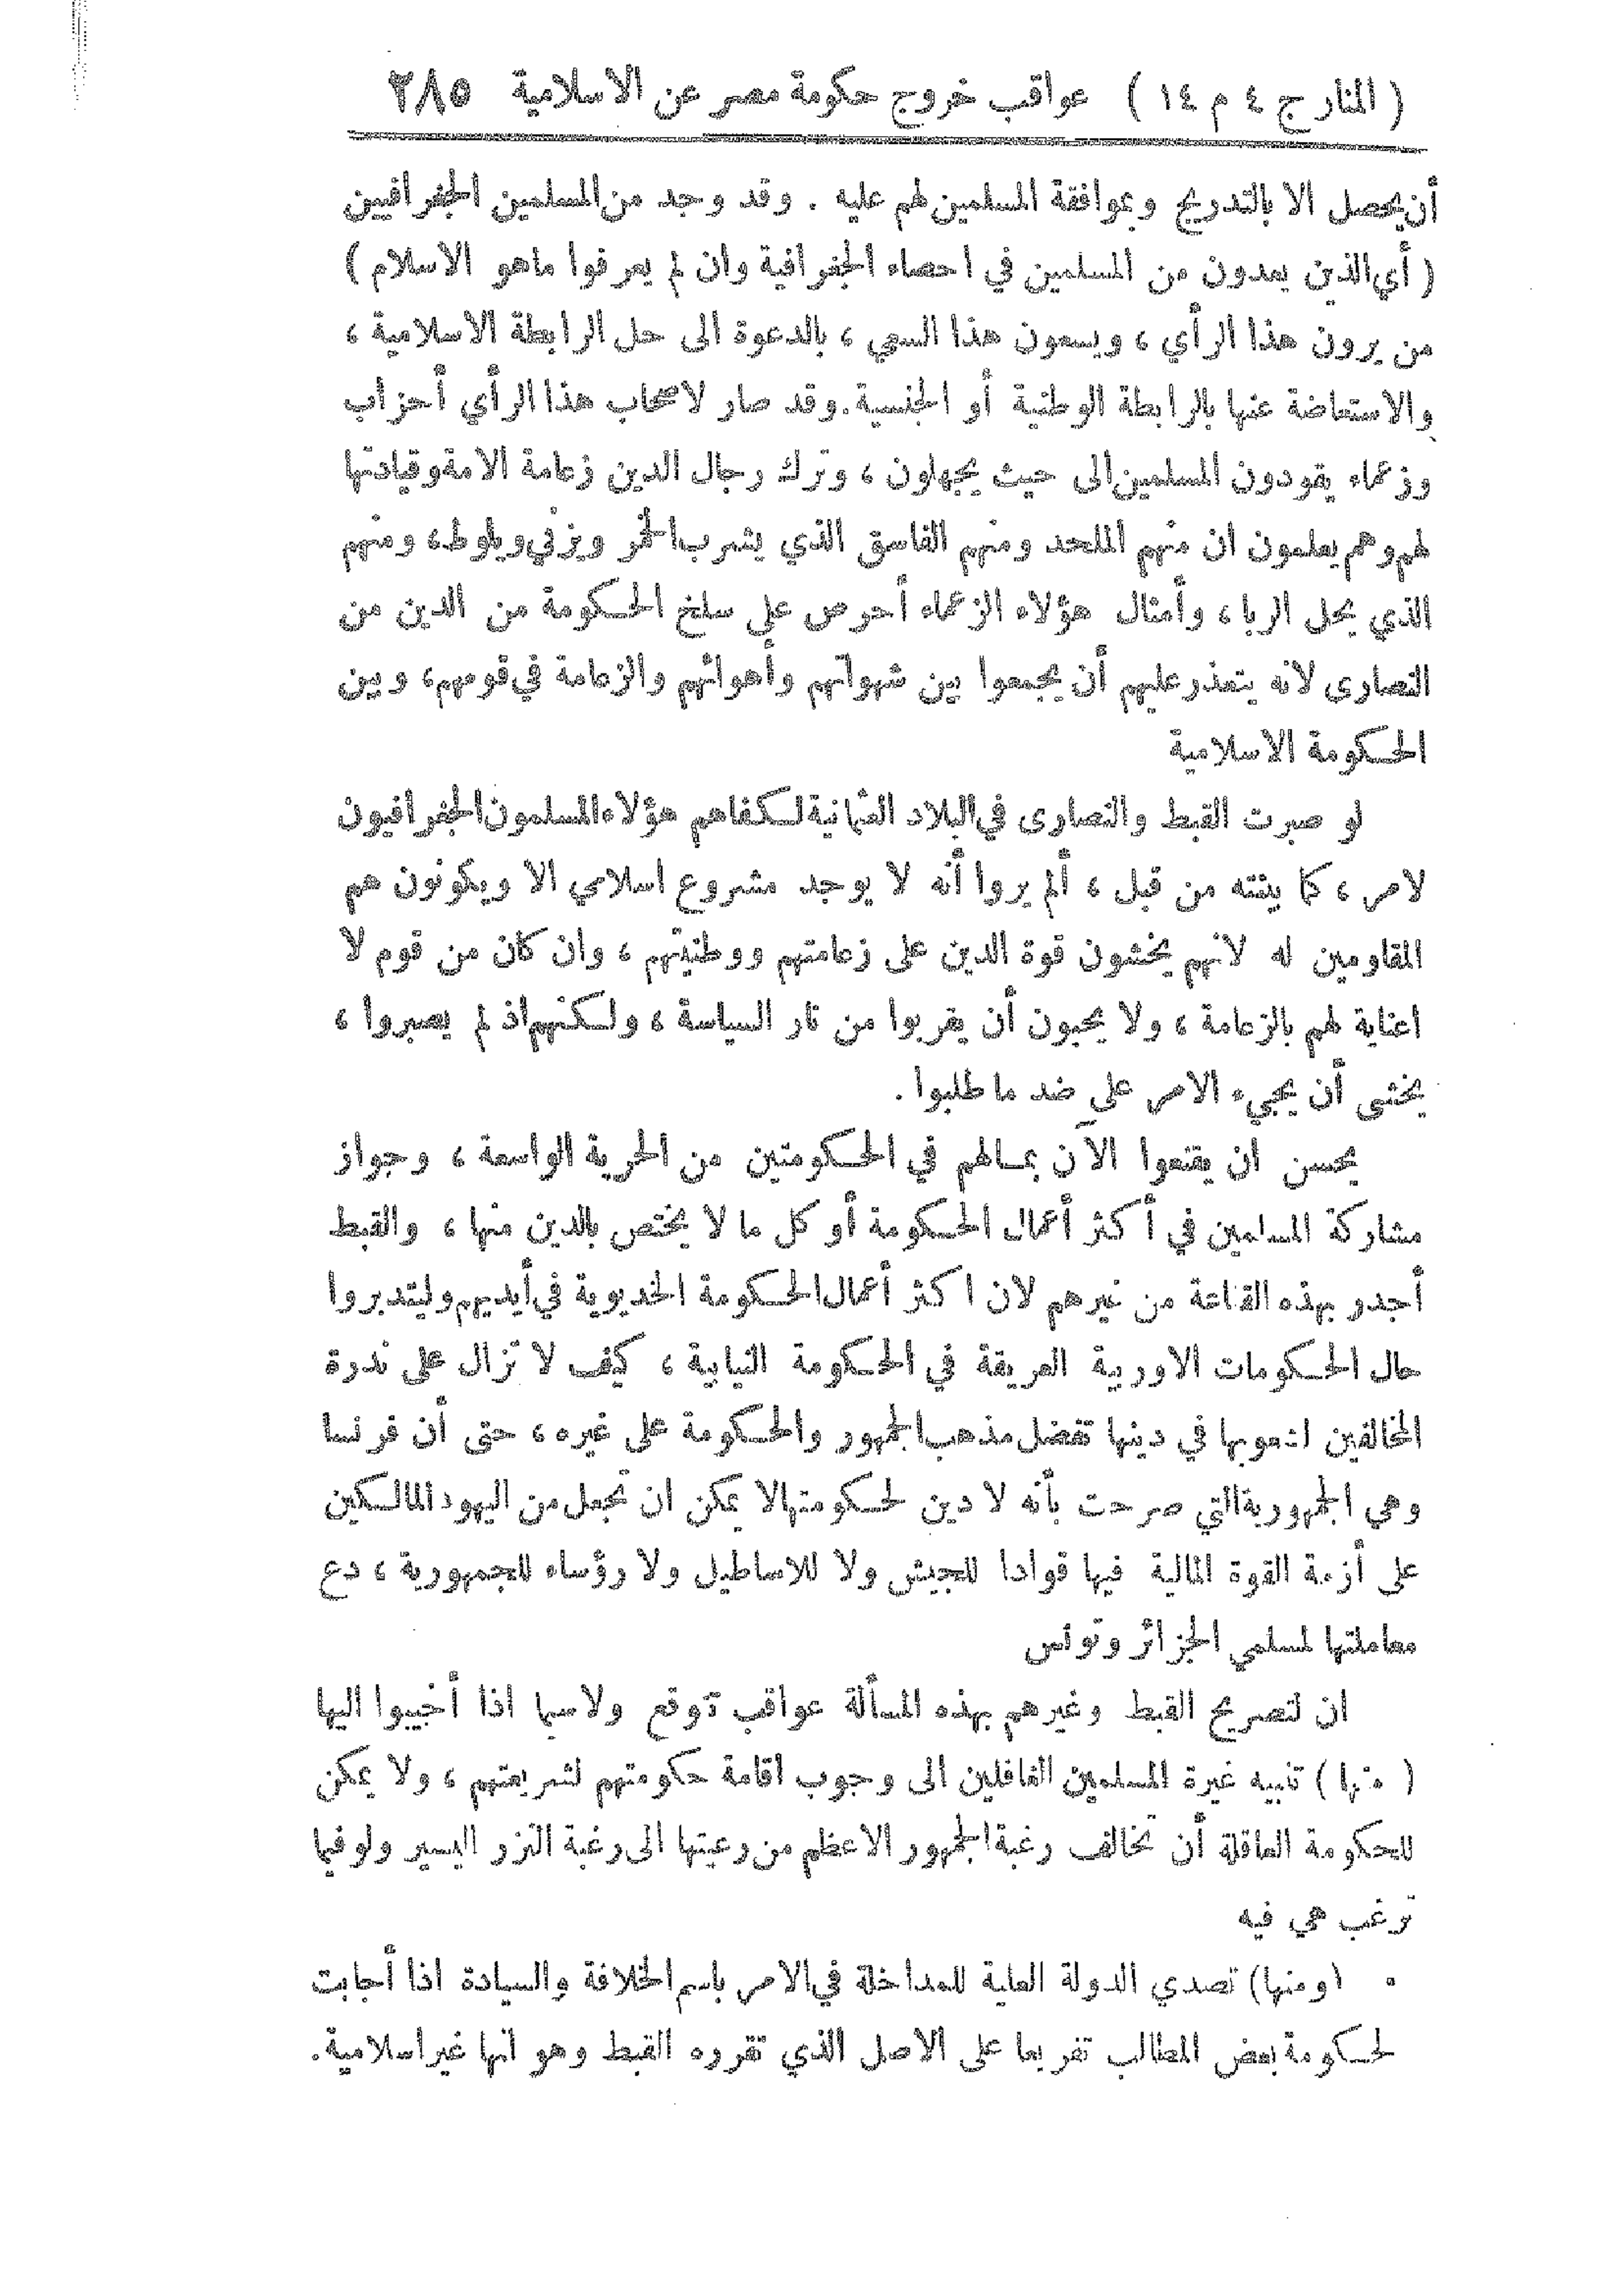 ( المنار ج ٤ م ١٤ ) عواقب خروج حكومة مصر عن الاسلامية ٢٨٥
أن يحصل الا بالتدريج وبموافقة المسلمين لهم عليه . وقد وجد من المسلمين الجغرافيين
( أي الذين يعدون من المسلمين في احصاء الجغرافية وان لم يعرفوا ماهو الاسلام )
من يرون هذا الرأي ، ويسعون هذا السعي ، بالدعوة الى حل الرابطة الاسلامية ،
والاستعاضة عنها بالرابطة الوطنية أو الجنسية . وقد صار لاصحاب هذا الرأي أحزاب
وزعماء يقودون المسلمين الى حيث يجهلون ، وترك رجال الدين زعامة الامة وقيادتها
لهم وهم يعلمون ان منهم الملحد ومنهم الفاسق الذي يشرب الخمر ويزني ويلوط ، ومنهم
الذي يحل الربا ، وأمثال هؤلاء الزعماء أحرص على سلخ الحكومة من الدين من
النصارى لانه يتعذر عليهم أن يجمعوا بين شهواتهم وأهوائهم والزعامة في قومهم ، وبين
الحكومة الاسلامية
لو صبرت القبط والنصارى في البلاد العثمانية لكفاهم هؤلاء المسلمون الجغرافيون
لامر ، كما بينته من قبل ، ألم يروا أنه لا يوجد مشروع اسلامي الا ويكونون هم
المقاومين له لانهم يخشون قوة الدين على زعامتهم ووطنيتهم ، وان كان من قوم لا
اعناية لهم بالزعامة ، ولا يحبون أن يقربوا من نار السياسة ، ولكنهم اذ لم يصبروا ،
يخشى أن يجيء الامر على ضد ما طلبوا .
يحسن ان يقنعوا الآن بمالهم في الحكومتين من الحرية الواسعة ، وجواز
مشاركة المسلمين في أكثر أعمال الحكومة أو كل ما لا يختص بالدين منها ، والقبط
أجدر بهذه القناعة من غيرهم لان اكثر أعمال الحكومة الخديوية في أيديهم وليتدبروا
حال الحكومات الاوربية العريقة في الحكومة النيابية ، كيف لا تزال على ندرة
المخالفين لشعوبها في دينها تفضل مذهب الجمهور والحكومة على غيره ، حتى أن فرنسا
وهي الجمهورية التي صرحت بأنه لا دين لحكومتها لا يمكن ان تجعل من اليهود المالكين
على أزمة القوة المالية فيها قوادا للجيش ولا للاساطيل ولا رؤساء للجمهورية ، دع
معاملتها لمسلمي الجزائر وتونس
ان لتصريح القبط وغيرهم بهذه المسألة عواقب تتوقع ولاسيما اذا أجيبوا اليها
( منها ) تنبيه غيرة المسلمين الغافلين الى وجوب اقامة حكومتهم لشريعتهم ، ولا يمكن
للحكومة العاقلة أن تخالف رغبة الجمهور الاعظم من رعيتها الى رغبة النزر اليسير ولو فيما
ترغب هي فيه
(ومنها) تصدي الدولة العلية للمداخلة في الامر باسم الخلافة والسيادة اذا أجابت
لحكومة بعض المطالب تفريعا على الاصل الذي تقرره القبط وهو انها غير اسلامية .